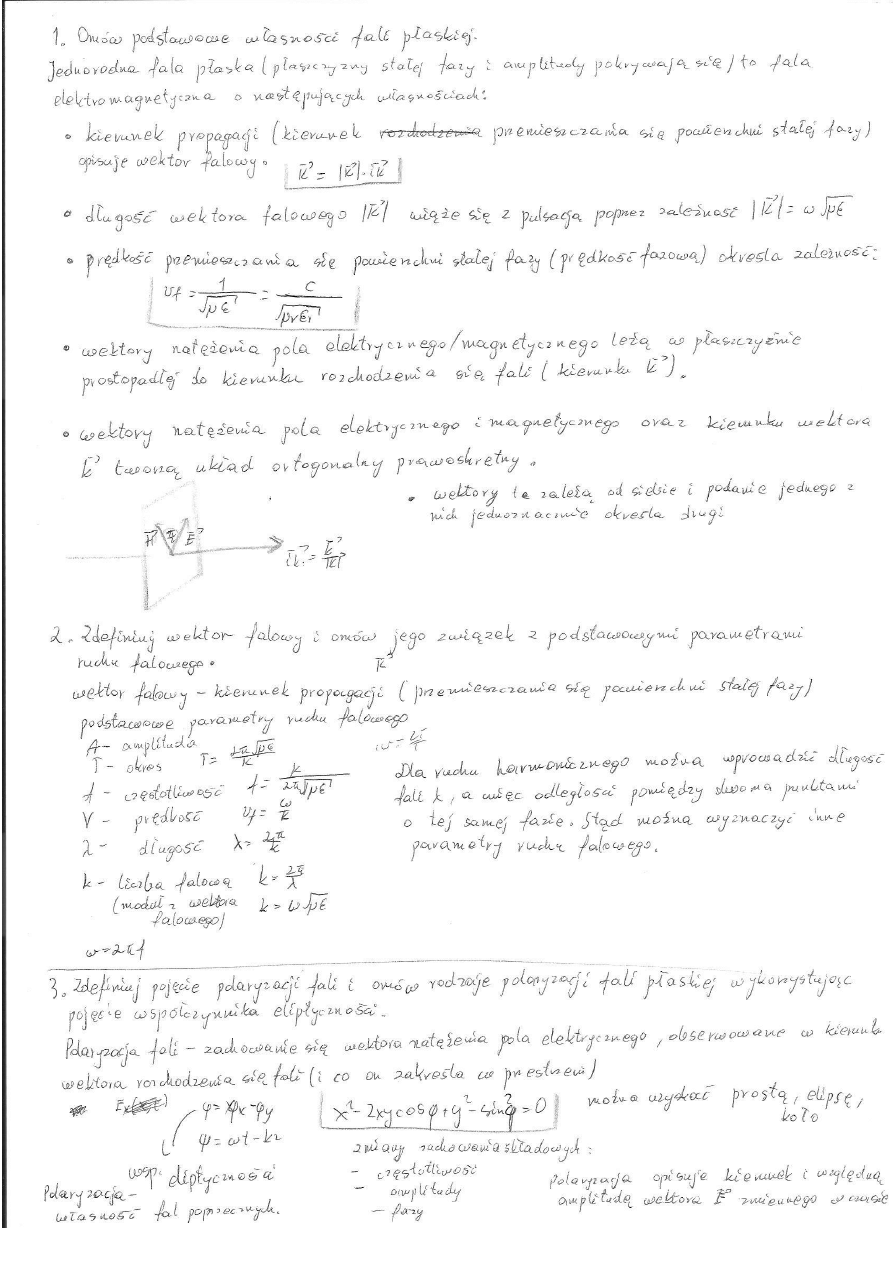 1. Omów podstawowe własności fali płaskiej.
Jednorodna fala płaska (płaszczyzny stałej fazy i amplitudy pokrywają się) to fala
elektromagnetyczna o następujących własnościach:
• kierunek propagacji (kierunek rozchodzenia przemieszczania się powierzchni stałej fazy)
opisuje wektor falowy. k⃗ = |k⃗|·i⃗k
• długość wektora falowego |k⃗| wiąże się z pulsacją poprzez zależność |k⃗| = ω√με
• prędkość przemieszczania się powierzchni stałej fazy (prędkość fazową) określa zależność:
vf = 1/√με = c/√μrεr
• wektory natężenia pola elektrycznego/magnetycznego leżą w płaszczyźnie
prostopadłej do kierunku rozchodzenia się fali (kierunku k⃗).
• wektory natężenia pola elektrycznego i magnetycznego oraz kierunku wektora
k⃗ tworzą układ ortogonalny prawoskrętny.
• wektory te zależą od siebie i podanie jednego z
nich jednoznacznie określa drugi
H⃗ E⃗ i⃗k = k⃗/|k⃗|
2. Zdefiniuj wektor falowy i omów jego związek z podstawowymi parametrami
ruchu falowego. k⃗
wektor falowy – kierunek propagacji (przemieszczania się powierzchni stałej fazy)
podstawowe parametry ruchu falowego
A – amplituda
T – okres T = 2π√με/k
f – częstotliwość f = k/2π√με
V – prędkość vf = ω/k
λ – długość λ = 2π/k
k – liczba falowa k = 2π/λ
(moduł z wektora k = ω√με
falowego)
ω = 2πf
ω = 2π/T
Dla ruchu harmonicznego można wprowadzić długość
fali λ, a więc odległości pomiędzy dwoma punktami
o tej samej fazie. Stąd można wyznaczyć inne
parametry ruchu falowego.
3. Zdefiniuj pojęcie polaryzacji fali i omów rodzaje polaryzacji fali płaskiej wykorzystując
pojęcie współczynnika eliptyczności.
Polaryzacja fali – zachowanie się wektora natężenia pola elektrycznego, obserwowane w kierunku
wektora rozchodzenia się fali (i co on zakreśla w przestrzeni)
Ex φ = φx – φy x² – 2xy cosφ + y² – sin²φ = 0 można uzyskać prostą, elipsę,
koło
ψ = ωt – kz
wsp. eliptyczności
Polaryzacja –
własność fal poprzecznych.
zmiany zachowania składowych:
– częstotliwość
– amplitudy
– fazy
Polaryzacja opisuje kierunek i względną
amplitudę wektora E⃗ zmiennego w czasie